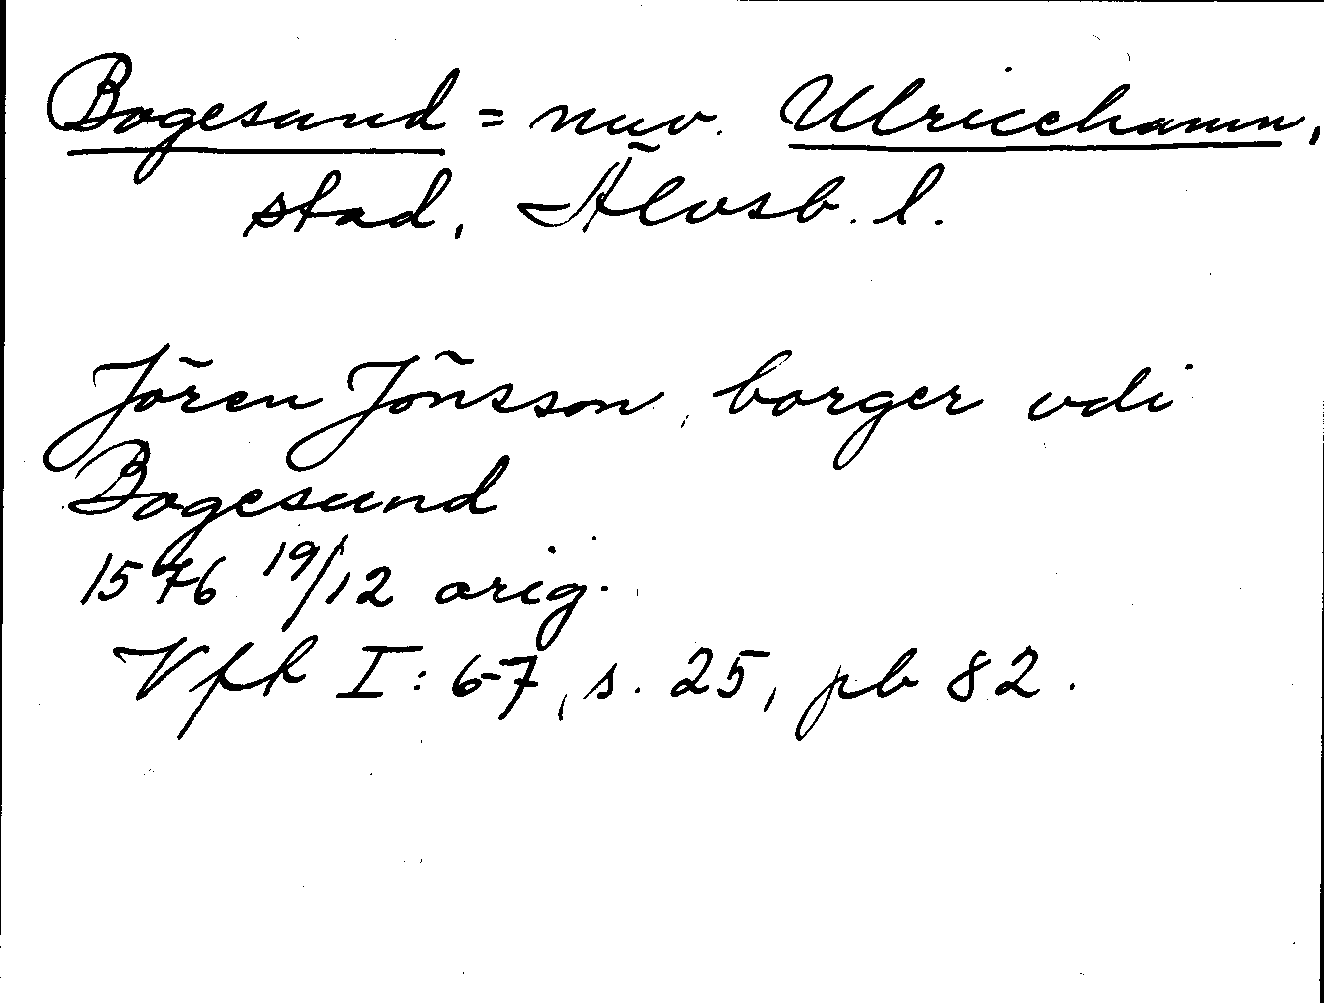 Bogesund = nuv. Ulricehamn,
stad, Älvsb. l.
Jören Jönsson, borger vdi
Bogesund
1576 19/12 orig.
Vfk I: 67, s. 25, pb 82.